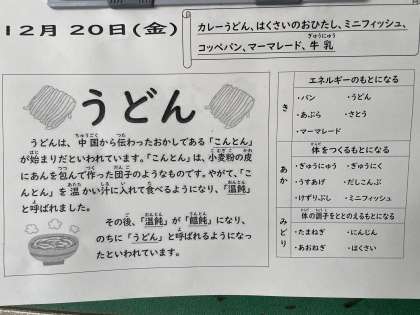 12月 20日(金)
カレーうどん、はくさいのおひたし、ミニフィッシュ、
コッペパン、マーマレード、牛乳
うどん
うどんは、中国から伝わったおかしである「こんとん」
が始まりだといわれています。「こんとん」は、小麦粉の皮
にあんを包んで作った団子のようなものです。やがて、「こ
んとん」を温かい汁に入れて食べるようになり、「温飩」
と呼ばれました。
その後、「温飩」が「饂飩」になり、
のちに「うどん」と呼ばれるようになっ
たといわれています。
き
エネルギーのもとになる
・パン ・うどん
・あぶら ・さとう
・マーマレード
あか
体をつくるもとになる
・ぎゅうにゅう ・ぎゅうにく
・うすあげ ・だしこんぶ
・けずりぶし ・ミニフィッシュ
みどり
体の調子をととのえるもとになる
・たまねぎ ・にんじん
・あおねぎ ・はくさい